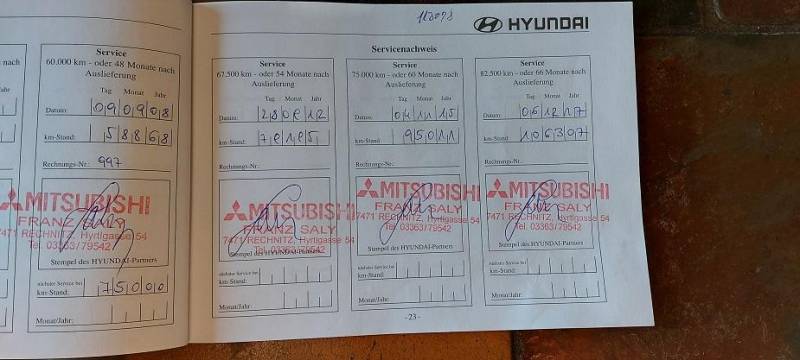 118098
HYUNDAI
Servicenachweis
Service
60.000 km - oder 48 Monate nach
Auslieferung
Tag Monat Jahr
Datum: 09 09 08
km-Stand: 58868
Rechnungs-Nr.: 997
MITSUBISHI
FRANZ SALY
7471 RECHNITZ, Hyrtlgasse 54
Tel. 03363/79542
Stempel des HYUNDAI-Partners
nächster Service bei
km-Stand: 75000
Monat/Jahr:
Service
67.500 km - oder 54 Monate nach
Auslieferung
Tag Monat Jahr
Datum:
km-Stand:
Rechnungs-Nr.:
MITSUBISHI
FRANZ SALY
7471 RECHNITZ, Hyrtlgasse 54
Tel. 03363/79542
Stempel des HYUNDAI-Partners
nächster Service bei
km-Stand:
Monat/Jahr:
Service
75.000 km - oder 60 Monate nach
Auslieferung
Tag Monat Jahr
Datum: 04 11 15
km-Stand: 95011
Rechnungs-Nr.:
MITSUBISHI
FRANZ SALY
7471 RECHNITZ, Hyrtlgasse 54
Tel. 03363/79542
Stempel des HYUNDAI-Partners
nächster Service bei
km-Stand:
Monat/Jahr:
Service
82.500 km - oder 66 Monate nach
Auslieferung
Tag Monat Jahr
Datum: 06 12 17
km-Stand: 106307
Rechnungs-Nr.:
MITSUBISHI
FRANZ SALY
7471 RECHNITZ, Hyrtlgasse 54
Tel. 03363/79542
Stempel des HYUNDAI-Partners
nächster Service bei
km-Stand:
Monat/Jahr:
- 23 -